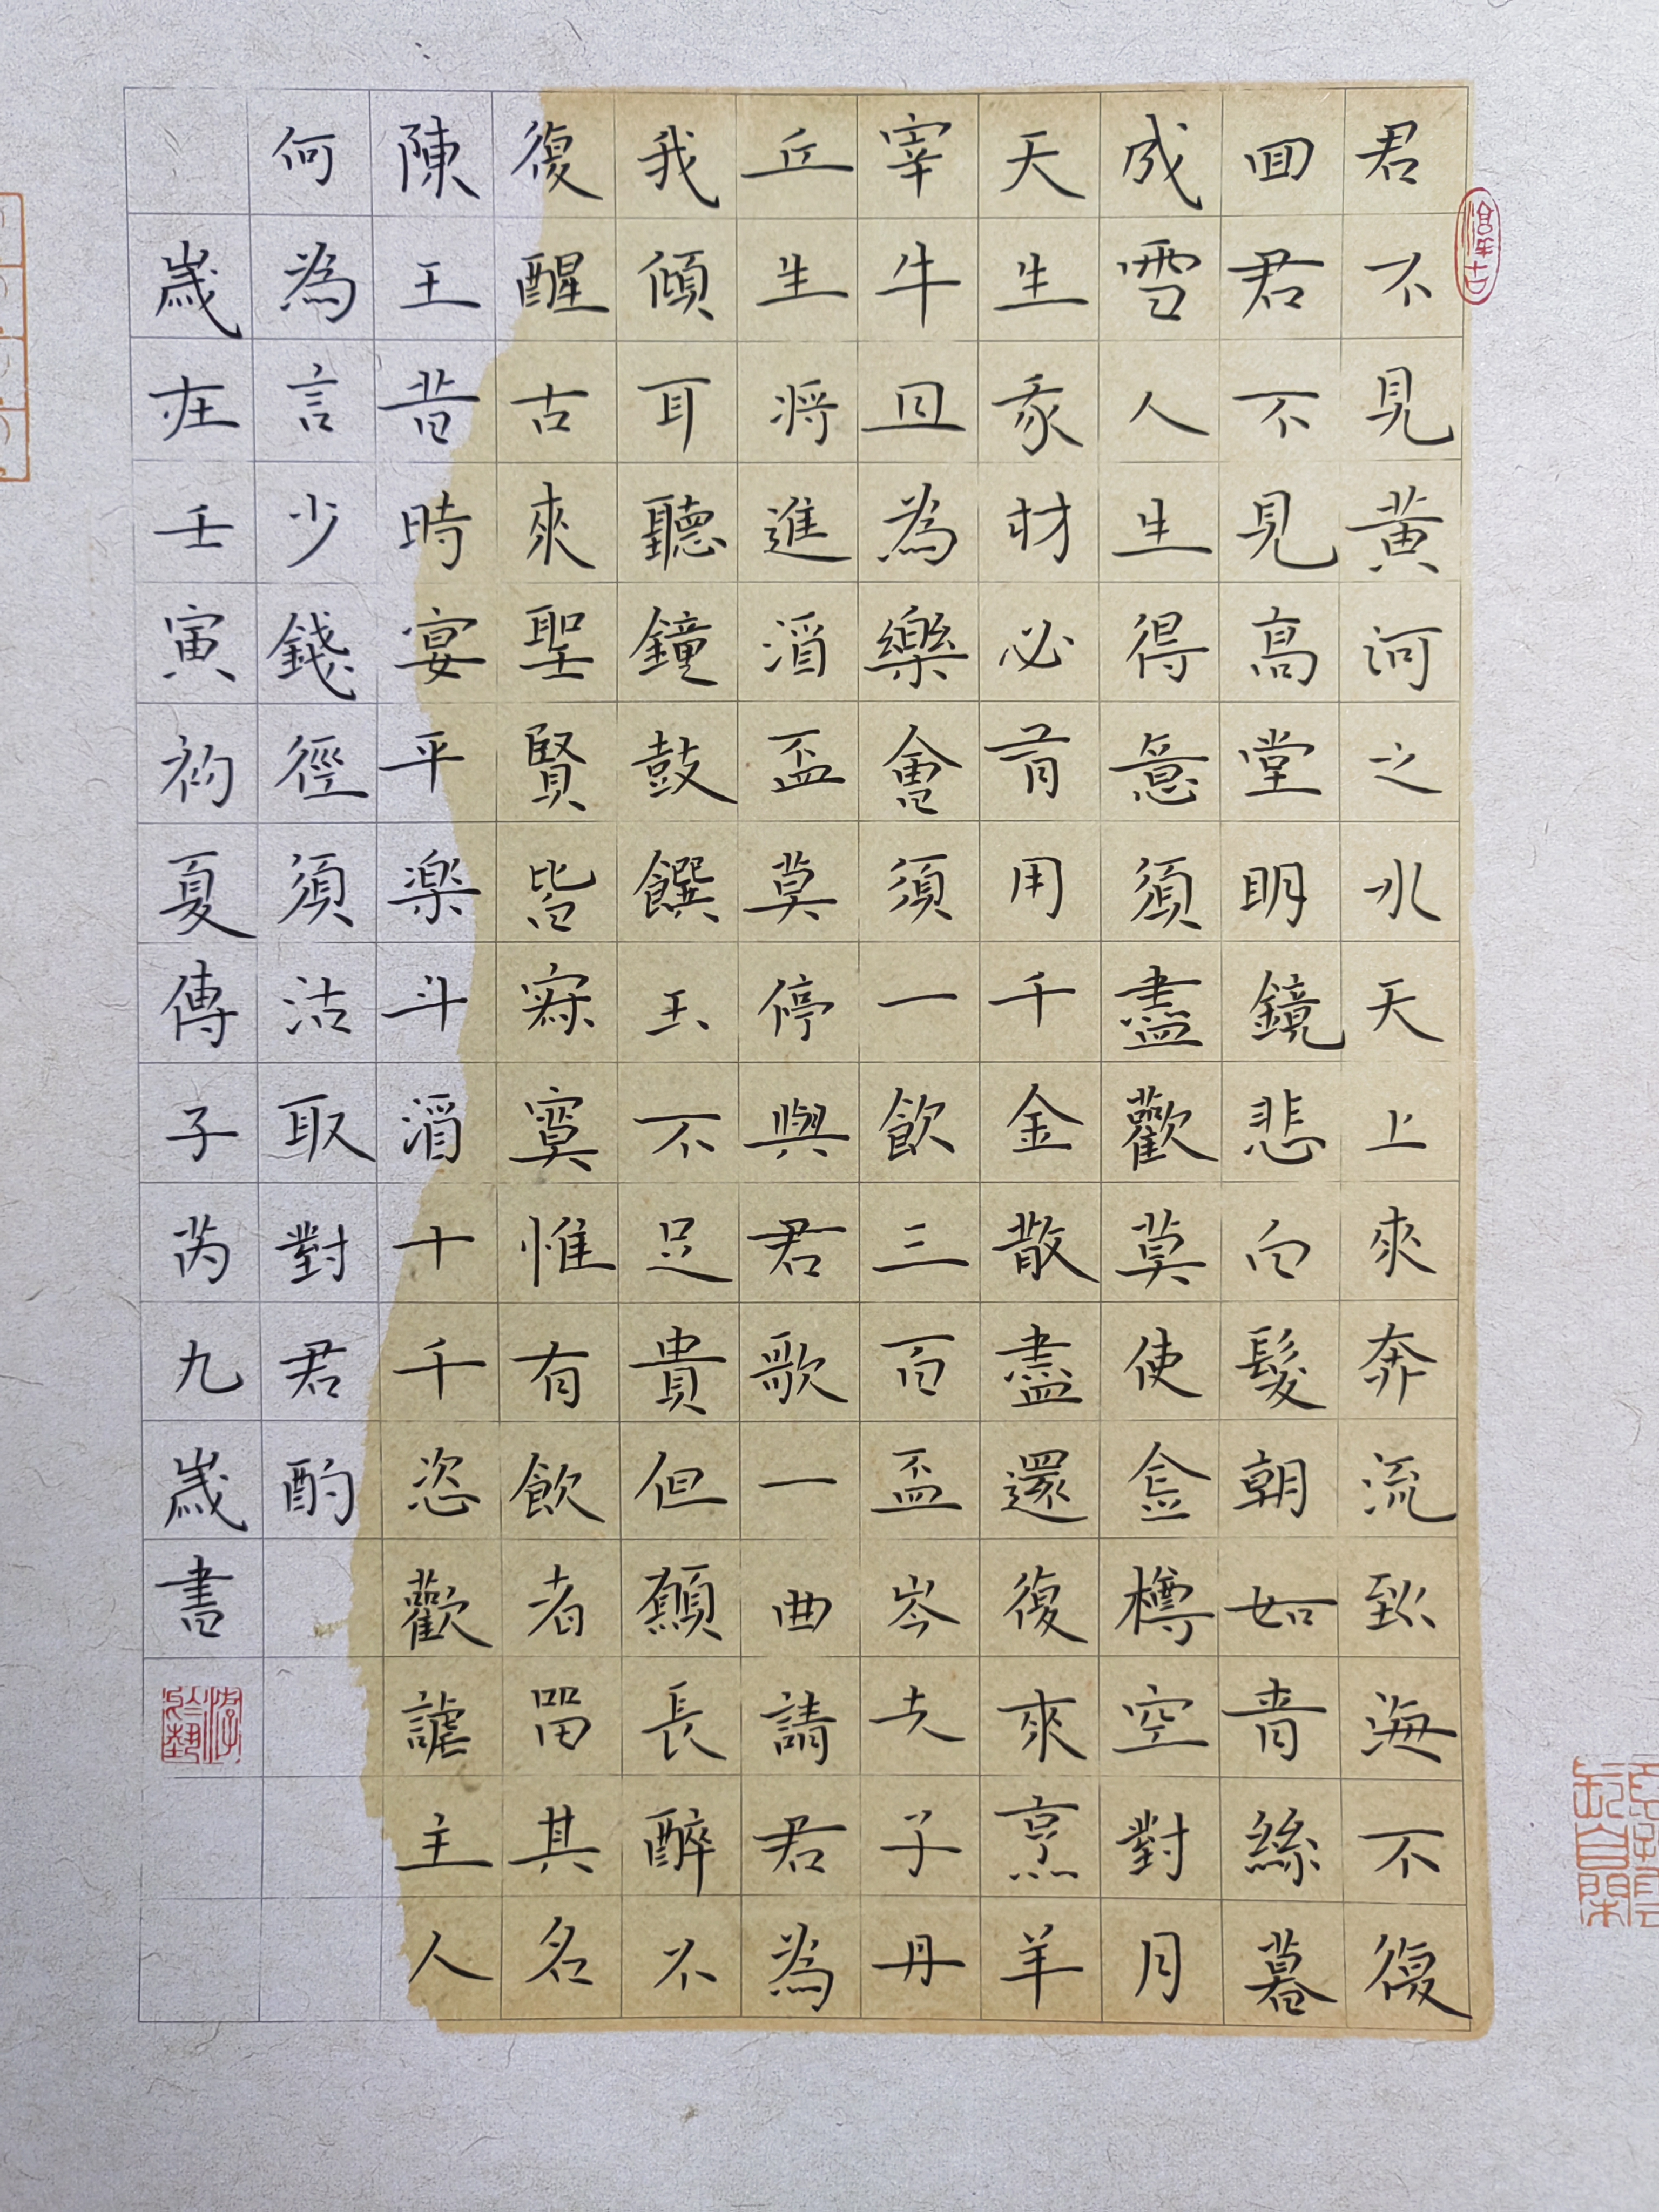 君不見黃河之水天上來奔流到海不復
回君不見高堂明鏡悲白髮朝如青絲暮
成雪人生得意須盡歡莫使金樽空對月
天生我材必有用千金散盡還復來烹羊
宰牛且為樂會須一飲三百盃岑夫子丹
丘生將進酒盃莫停與君歌一曲請君為
我傾耳聽鐘鼓饌玉不足貴但願長醉不
復醒古來聖賢皆寂寞惟有飲者留其名
陳王昔時宴平樂斗酒十千恣歡謔主人
何為言少錢徑須沽取對君酌
歲在壬寅初夏傅子芮九歲書